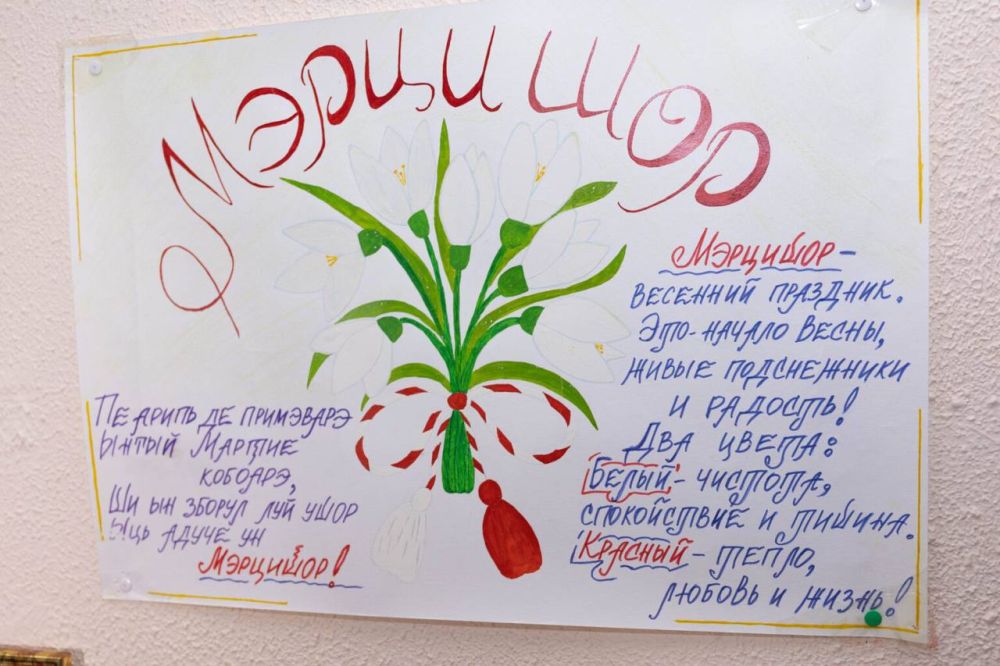 Мэрцишор
Пе арипь де примэварэ
Ынтый Мартие
кобоарэ,
Ши ын зборул луй ушор
Ыць адуче ун
Мэрцишор!
Мэрцишор -
весенний праздник.
Это - начало весны,
живые подснежники
и радость!
Два цвета:
Белый - чистота,
спокойствие и тишина.
Красный - тепло,
любовь и жизнь!